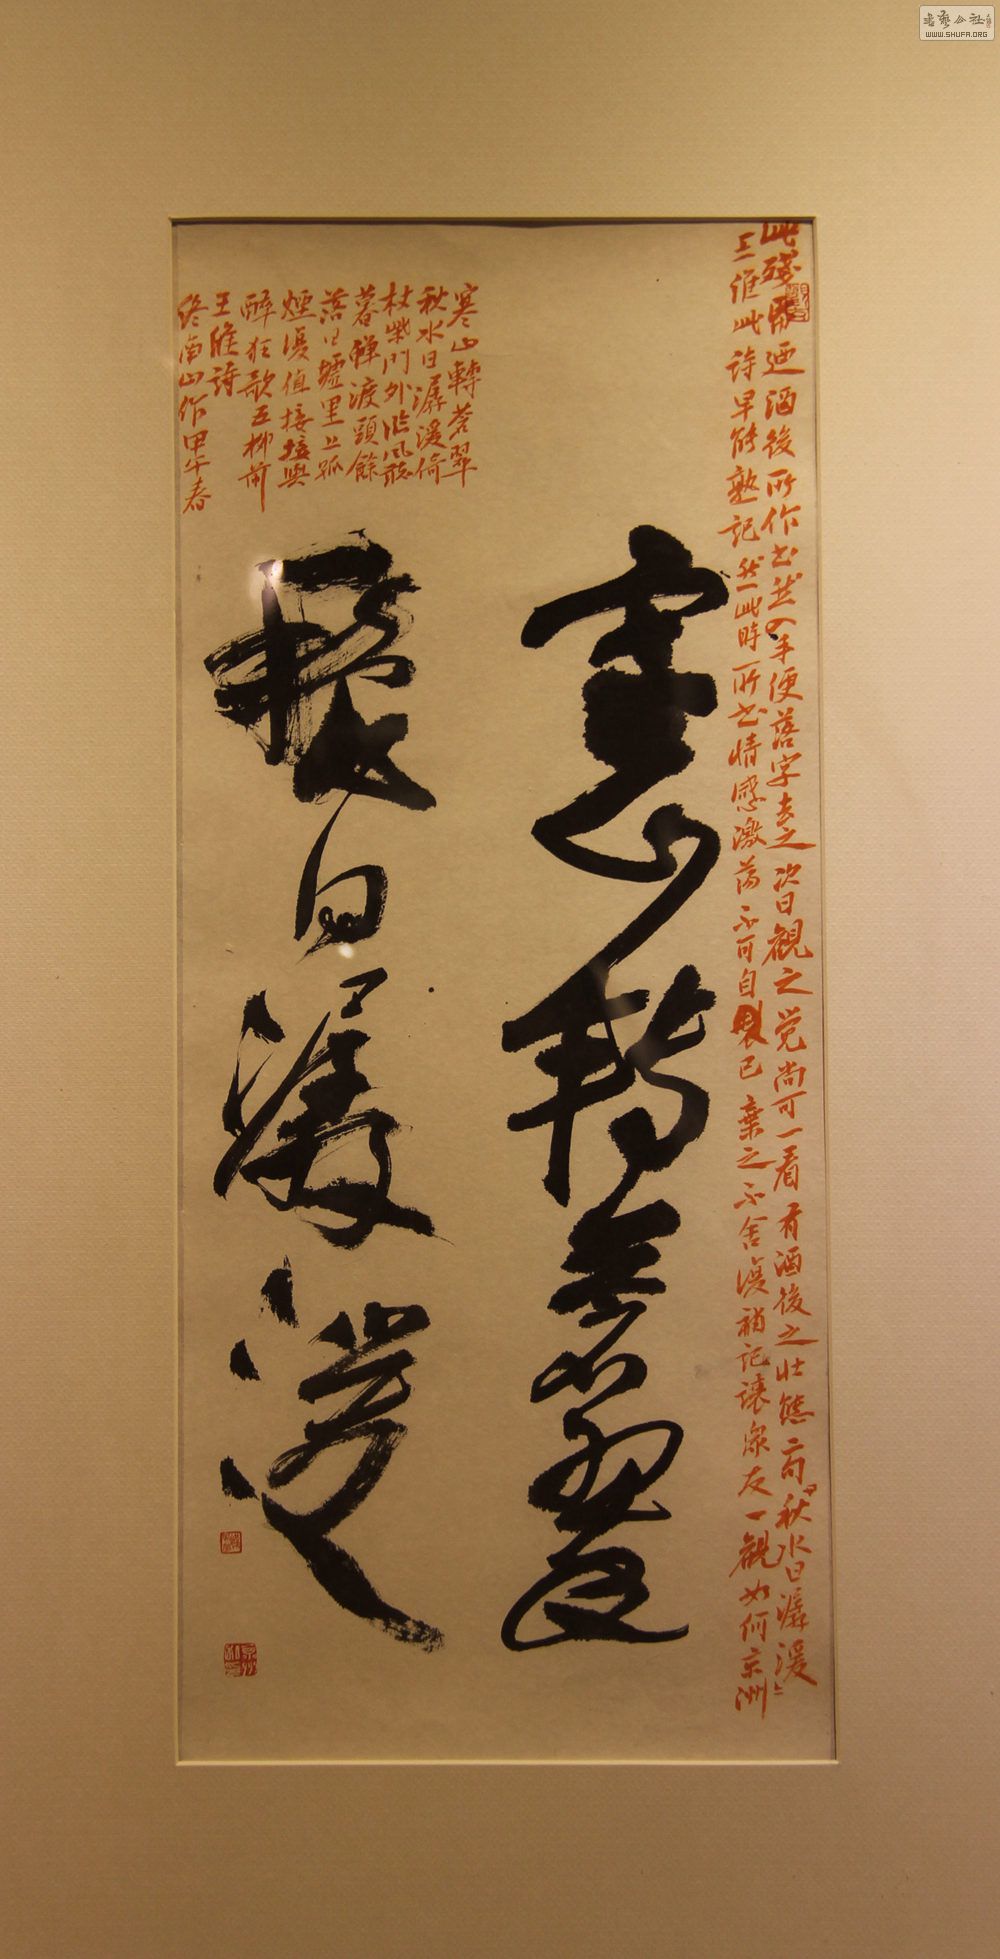 寒山轉蒼翠
暖日潺湲
此殘紙迺酒後所作书然入手便落字去之次日觀之觉尚可一看有酒後之壮態二句秋水日潺湲
王維此诗早能熟記然此時所书情感激荡不可自製已棄之不舍復補記讓眾友一觀如何京洲
寒山轉蒼翠
秋水日潺湲倚
杖柴門外临风聽
暮蟬渡頭餘
落日墟里上孤
煙復值接輿
醉狂歌五柳前
王維诗
终南山作甲午春
書藝公社
WWW.SHUFA.ORG